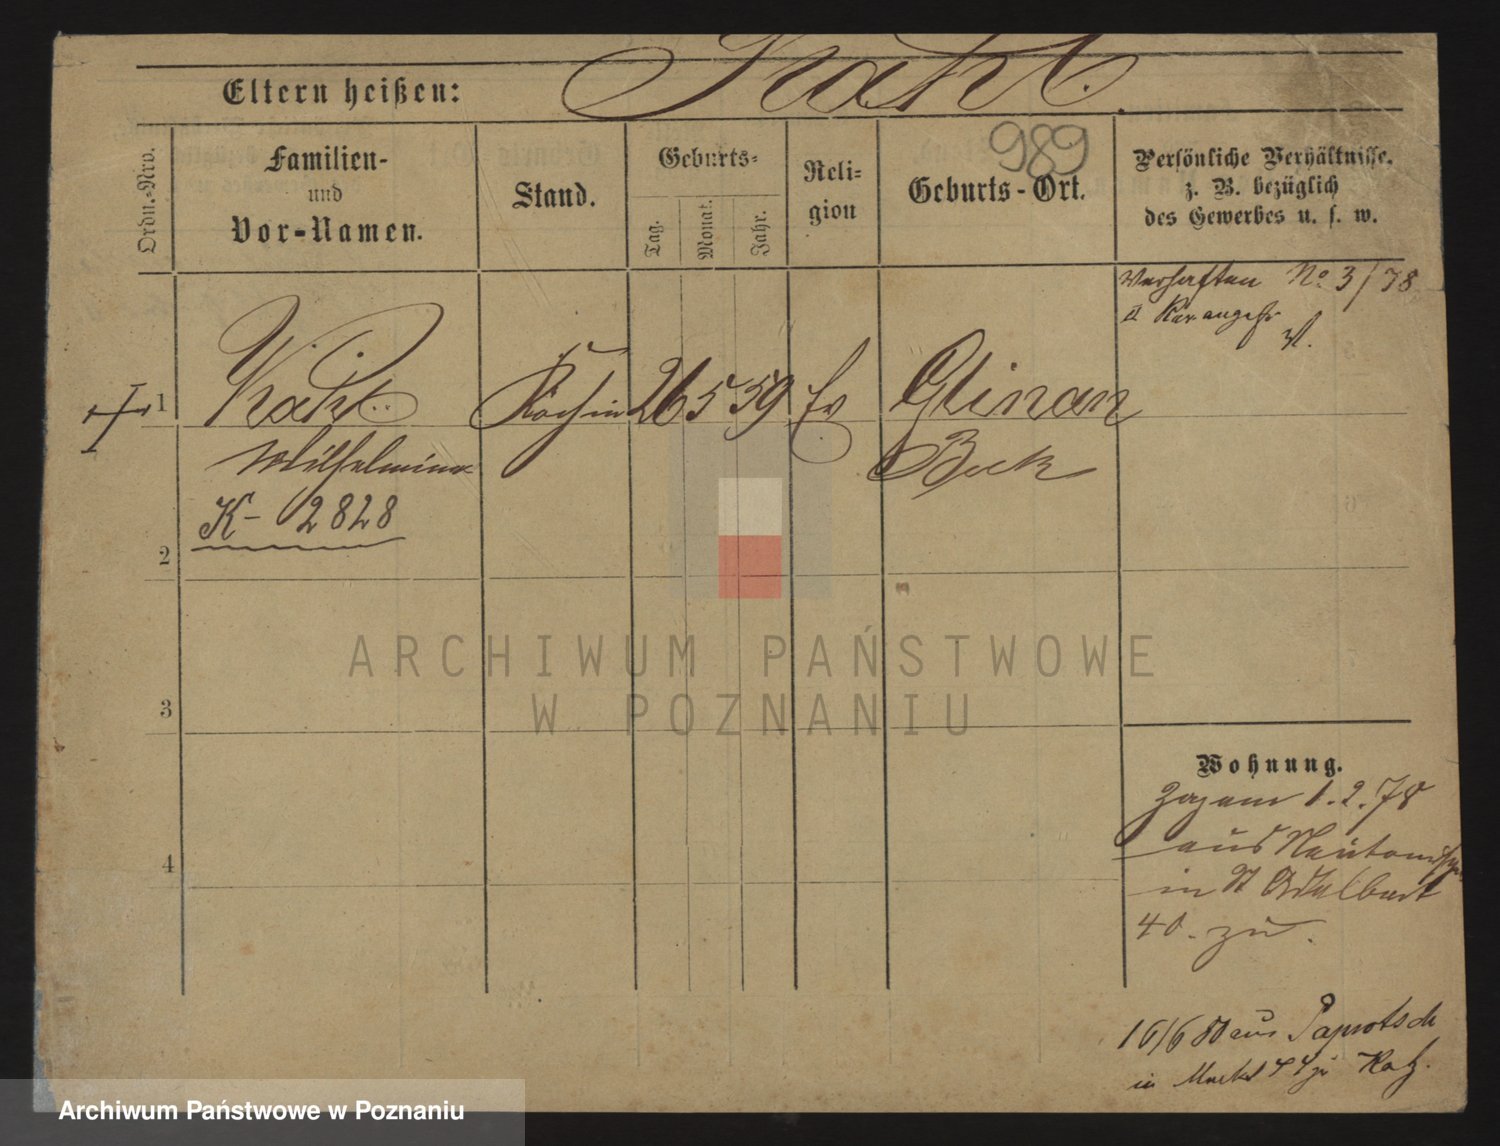 Eltern heißen: Kahl.
989
Ordn.-Nro.
Familien-
und
Vor-Namen.
Stand.
Geburts-
Tag.
Monat.
Jahr.
Reli-
gion
Geburts-Ort.
Persönliche Verhältnisse.
z. B. bezüglich
des Gewerbes u. s. w.
Verhaften No 3/78
1
Kahl
Köchin
26
5
59
Ev
Glinau
Wilhelmine
Buk
K- 2828
2
3
4
Wohnung.
Zog am 1.2.78
aus Neutomischel
in St Adalbert
40. zu.
16/6 80 aus Paprotsch
in Markt 44 zu
ARCHIWUM PAŃSTWOWE
W POZNANIU
Archiwum Państwowe w Poznaniu